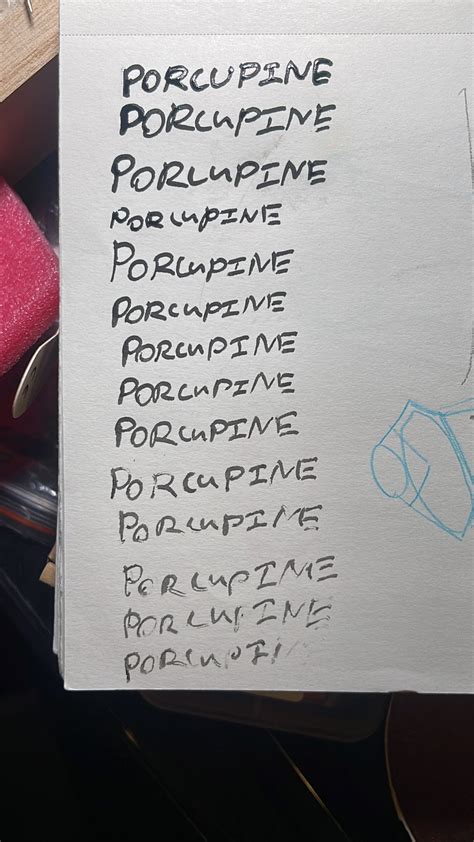 PORCUPINE
PORCUPINE
PORCUPINE
PORCUPINE
PORCUPINE
PORCUPINE
PORCUPINE
PORCUPINE
PORCUPINE
PORCUPINE
PORCUPINE
PORCUPINE
PORCUPINE
PORCUPIN